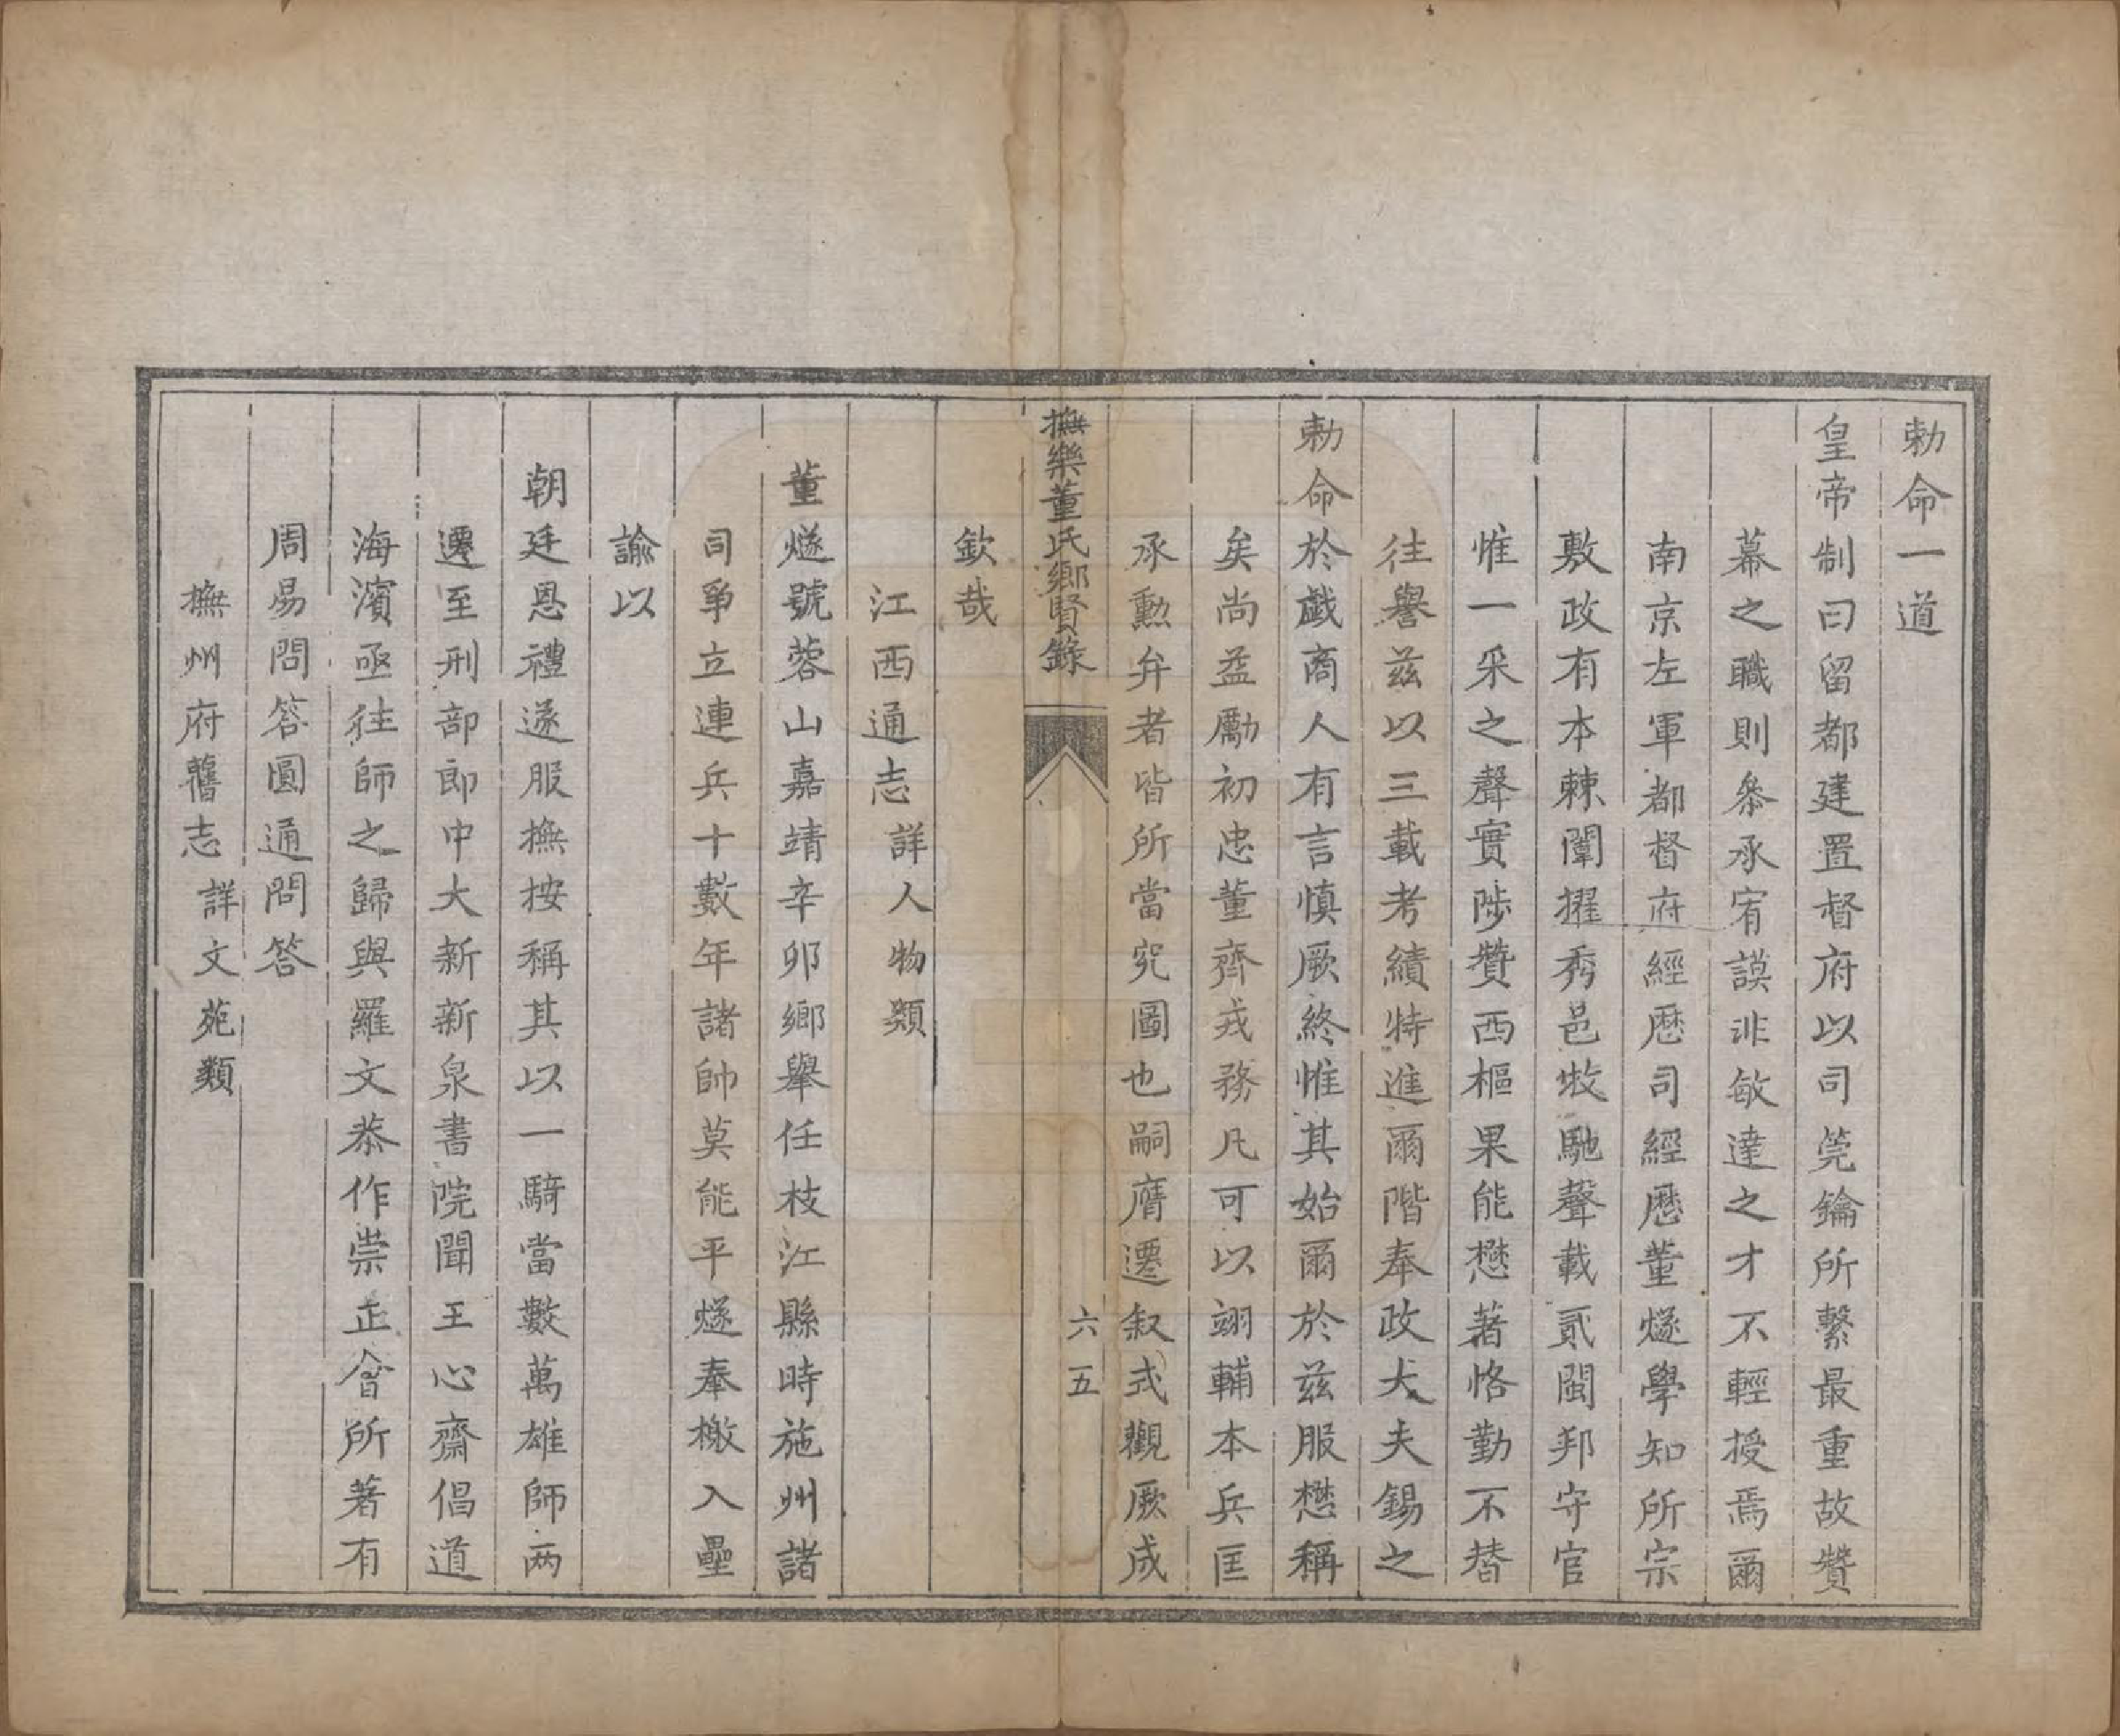 勅命一道
皇帝制曰留都建置督府以司筦鑰所繫最重故贊
幕之職則叅承宥謨非敏達之才不輕授焉爾
南京左軍都督府經歷司經歷董燧學知所宗
敷政有本棘闈擢秀邑牧馳聲載貳閩邦守官
惟一采之聲實陟贊西樞果能懋著恪勤不替
徃譽兹以三載考績特進爾階奉政大夫錫之
勅命於戯商人有言慎厥終惟其始爾於兹服懋稱
矣尚益勵初忠董齊戎務凡可以翊輔本兵匡
承勲弁者皆所當究圖也嗣膺遷叙式觀厥成
欽哉
撫樂董氏鄉賢錄
六五
江西通志 詳人物類
董燧號蓉山嘉靖辛卯鄉舉任枝江縣時施州諸
司爭立連兵十數年諸帥莫能平燧奉檄入壘
諭以
朝廷恩禮遂服撫按稱其以一騎當數萬雄師两
遷至刑部郎中大新新泉書院聞王心齋倡道
海濱亟徃師之歸與羅文恭作崇正會所著有
周易問答圓通問答
撫州府舊志 詳文苑類